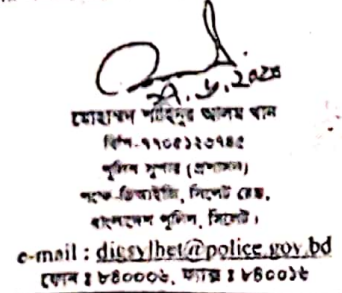 মোহাম্মদ শাহিনুর আলম খান
বিপি-৭৭০৫১২৩৭৪৫
পুলিশ সুপার (প্রশাসন)
পক্ষে-ডিআইজি, সিলেট রেঞ্জ,
বাংলাদেশ পুলিশ, সিলেট।
e-mail : digsylhet@police.gov.bd
ফোন : ৮৪০০০৬, ফ্যাক্স : ৮৪০০১৮